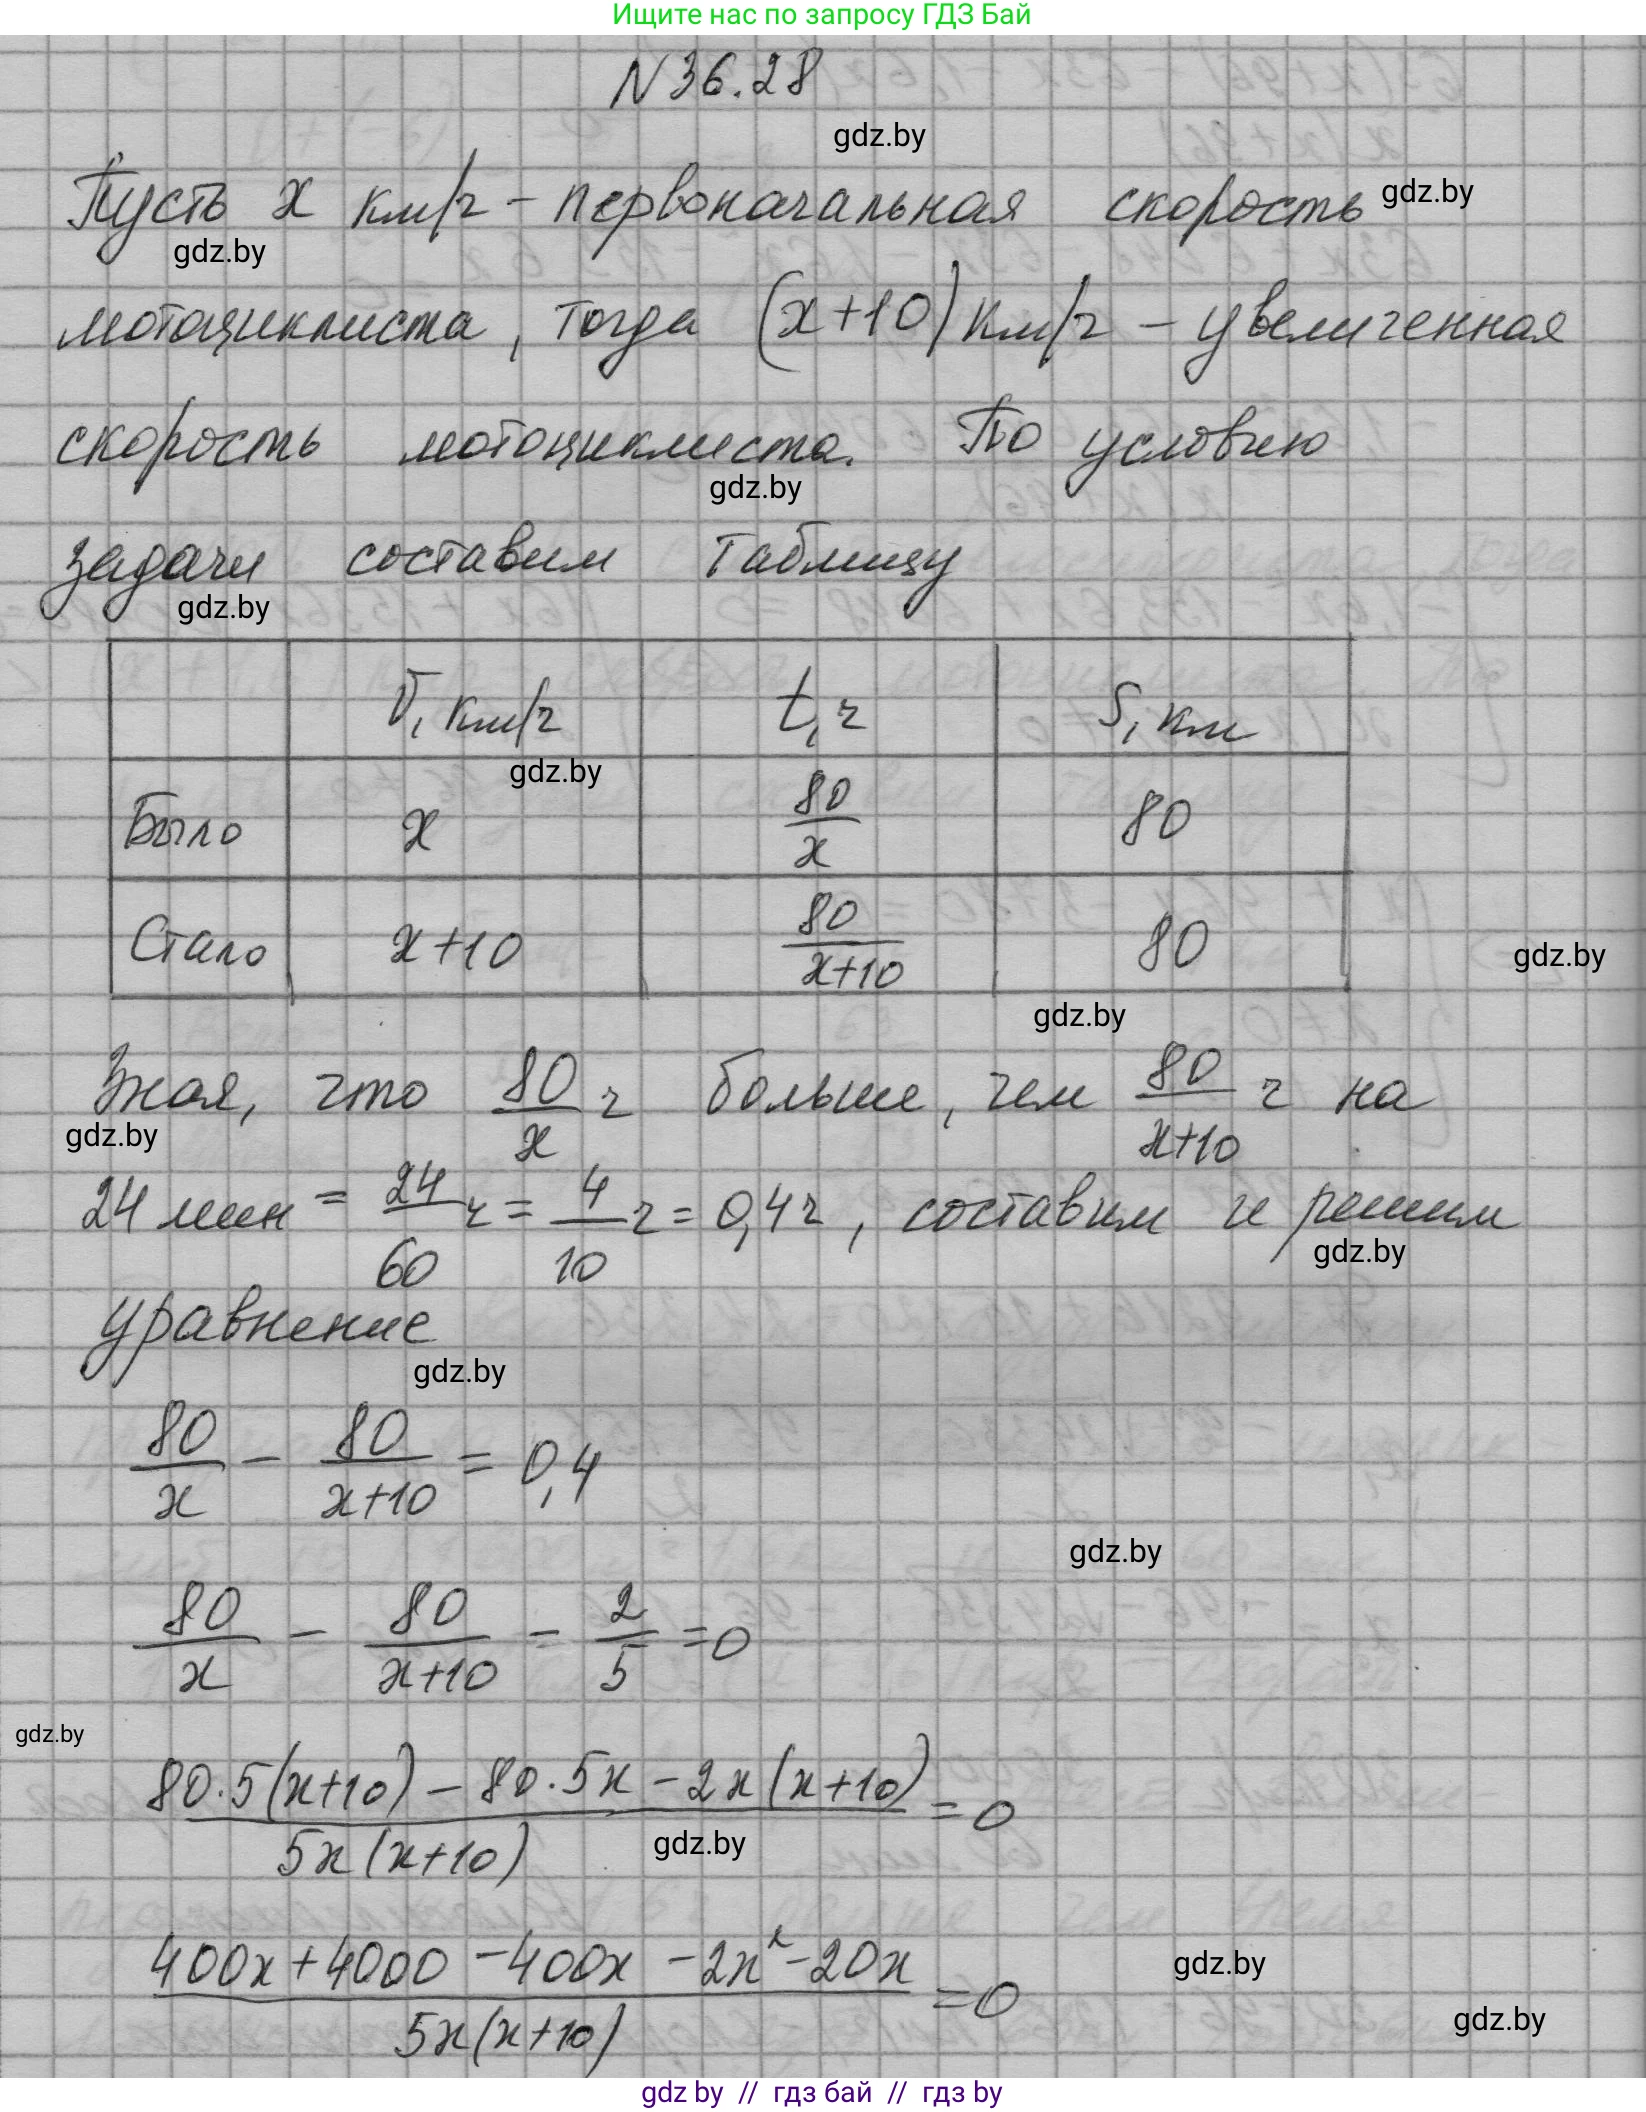 Ищите нас по запросу ГДЗ Бай
N 36.28
gdz.by
Пусть x км/ч – первоначальная скорость gdz.by
gdz.by
мотоциклиста, тогда (x+10) км/ч – увеличенная
скорость мотоциклиста. По условию
gdz.by
задачи составим таблицу
gdz.by
V, км/ч t, ч S, км
gdz.by
Было x 80/x 80
Стало x+10 80/(x+10) 80
gdz.by
gdz.by
Зная, что 80/x ч больше, чем 80/(x+10) ч на
gdz.by
24 мин = 24/60 ч = 4/10 ч = 0,4 ч, составим и решим
gdz.by
уравнение
gdz.by
80/x - 80/(x+10) = 0,4
gdz.by
80/x - 80/(x+10) - 2/5 = 0
gdz.by
(80·5(x+10) - 80·5x - 2x(x+10))/(5x(x+10)) = 0
gdz.by
(400x+4000-400x-2x²-20x)/(5x(x+10)) = 0
gdz.by
gdz.by
gdz by // гдз бай // гдз by